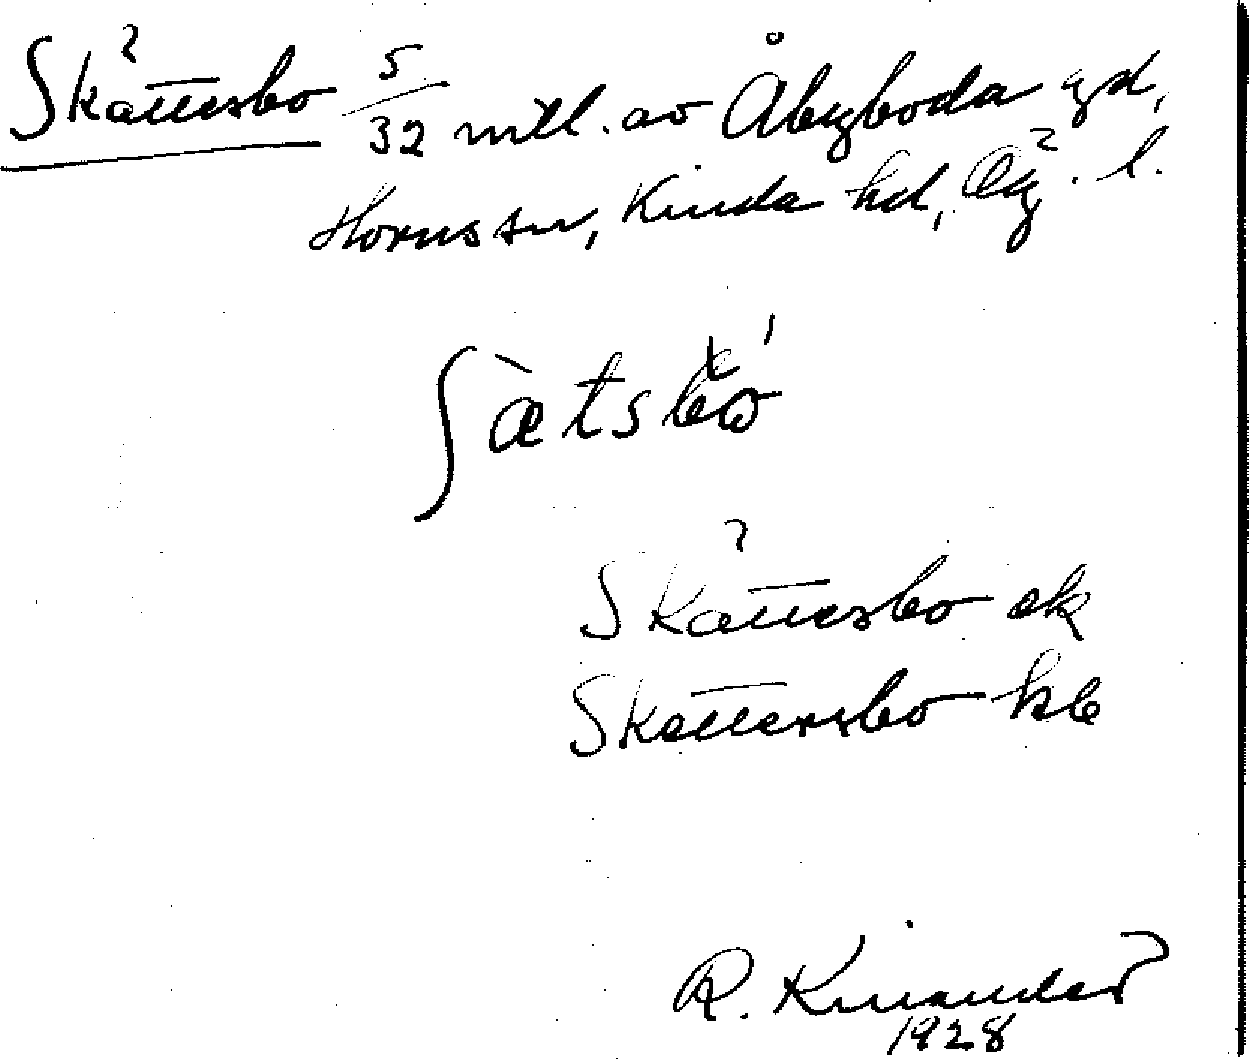 Skättesbo 5/32 mtl. av Åbyboda gd,
Horns sn, Kinda hd, Ög. l.
Skättesbo ek
Skättersbo kb
R. Kinander
1928